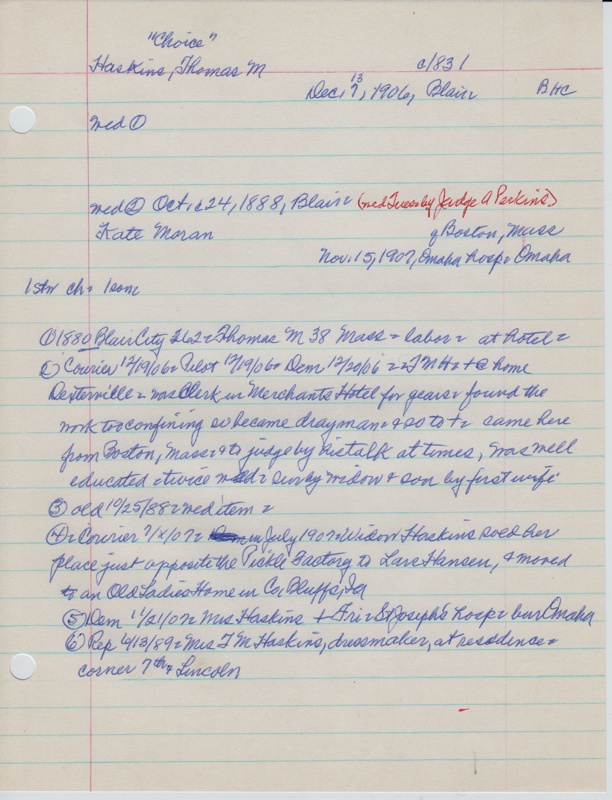 "Choice"
Haskins, Thomas M c/831
13
Dec. 7, 1906, Blair BHC
wed ①
wed ② Oct. 24, 1888, Blair (wed Tues by Judge A Perkins)
Kate Moran of Boston, Mass
Nov. 15, 1907, Omaha hosp Omaha
1st w ch 1 son
① 1880 Blair City 262 Thomas M 38 Mass labor at hotel
② Courier 12/19/06 Pilot 12/19/06 Dem 12/20/06 T M H + @ home
Dexterville was Clerk in Merchants Hotel for years found the
work too confining so became drayman & so to + came here
from Boston, Mass & to judge by his talk at times, was well
educated twice wed surv by widow & son by first wife
③ old 10/25/88 wed item
④ Courier 7/x/07 in July 1907 Widow Haskins sold her
place just opposite the Pickle Factory to Lars Hansen, & moved
to an Old Ladies Home in Co. Bluffs, Ia
⑤ Dem 11/21/07 Mrs Haskins + Fri St Joseph's hosp bur Omaha
⑥ Rep 4/13/89 Mrs T M Haskins, dressmaker, at residence
corner 7th & Lincoln